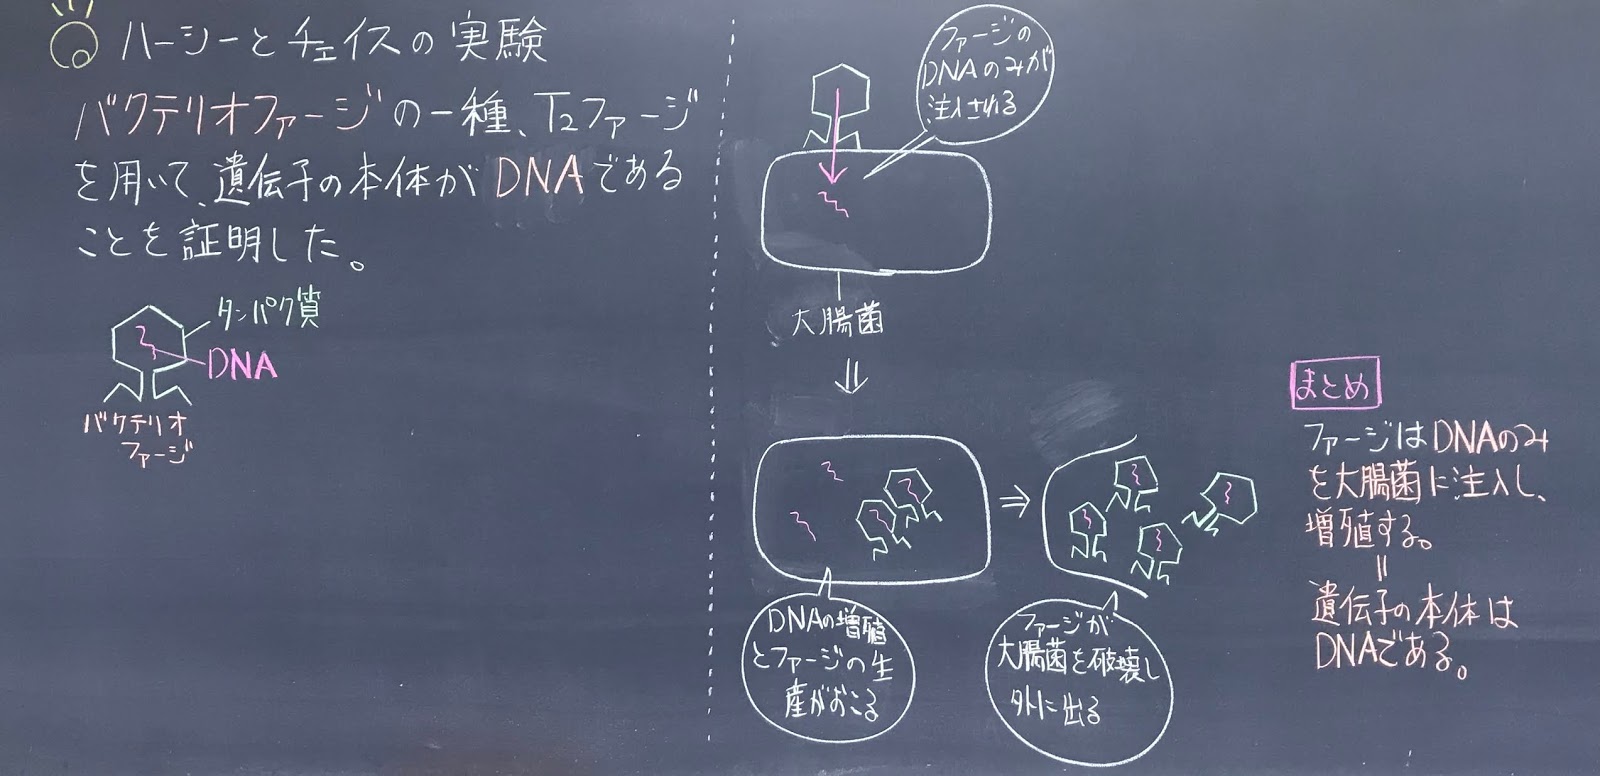 ハーシーとチェイスの実験
バクテリオファージの一種、T2ファージ
を用いて、遺伝子の本体がDNAである
ことを証明した。
タンパク質
DNA
バクテリオ
ファージ
ファージの
DNAのみが
注入される
大腸菌
⇓
⇒
DNAの増殖
とファージの生
産がおこる
ファージが
大腸菌を破壊し
外に出る
まとめ
ファージはDNAのみ
を大腸菌に注入し、
増殖する。
=
遺伝子の本体は
DNAである。